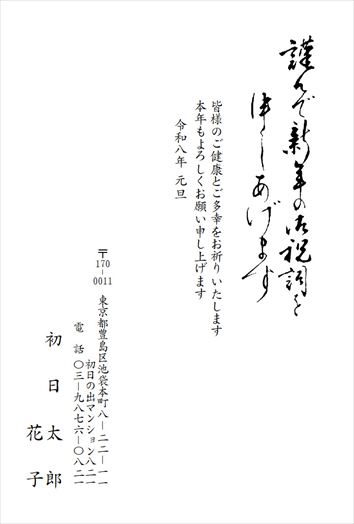 謹んで新年の御祝詞を
申しあげます
皆様のご健康とご多幸をお祈りいたします
本年もよろしくお願い申し上げます
令和八年 元旦
〒170-0011
東京都豊島区池袋本町八-二二-一一
初日の出マンション八二一
電話 〇三-九八七六-〇八二一
初日 太郎
花子